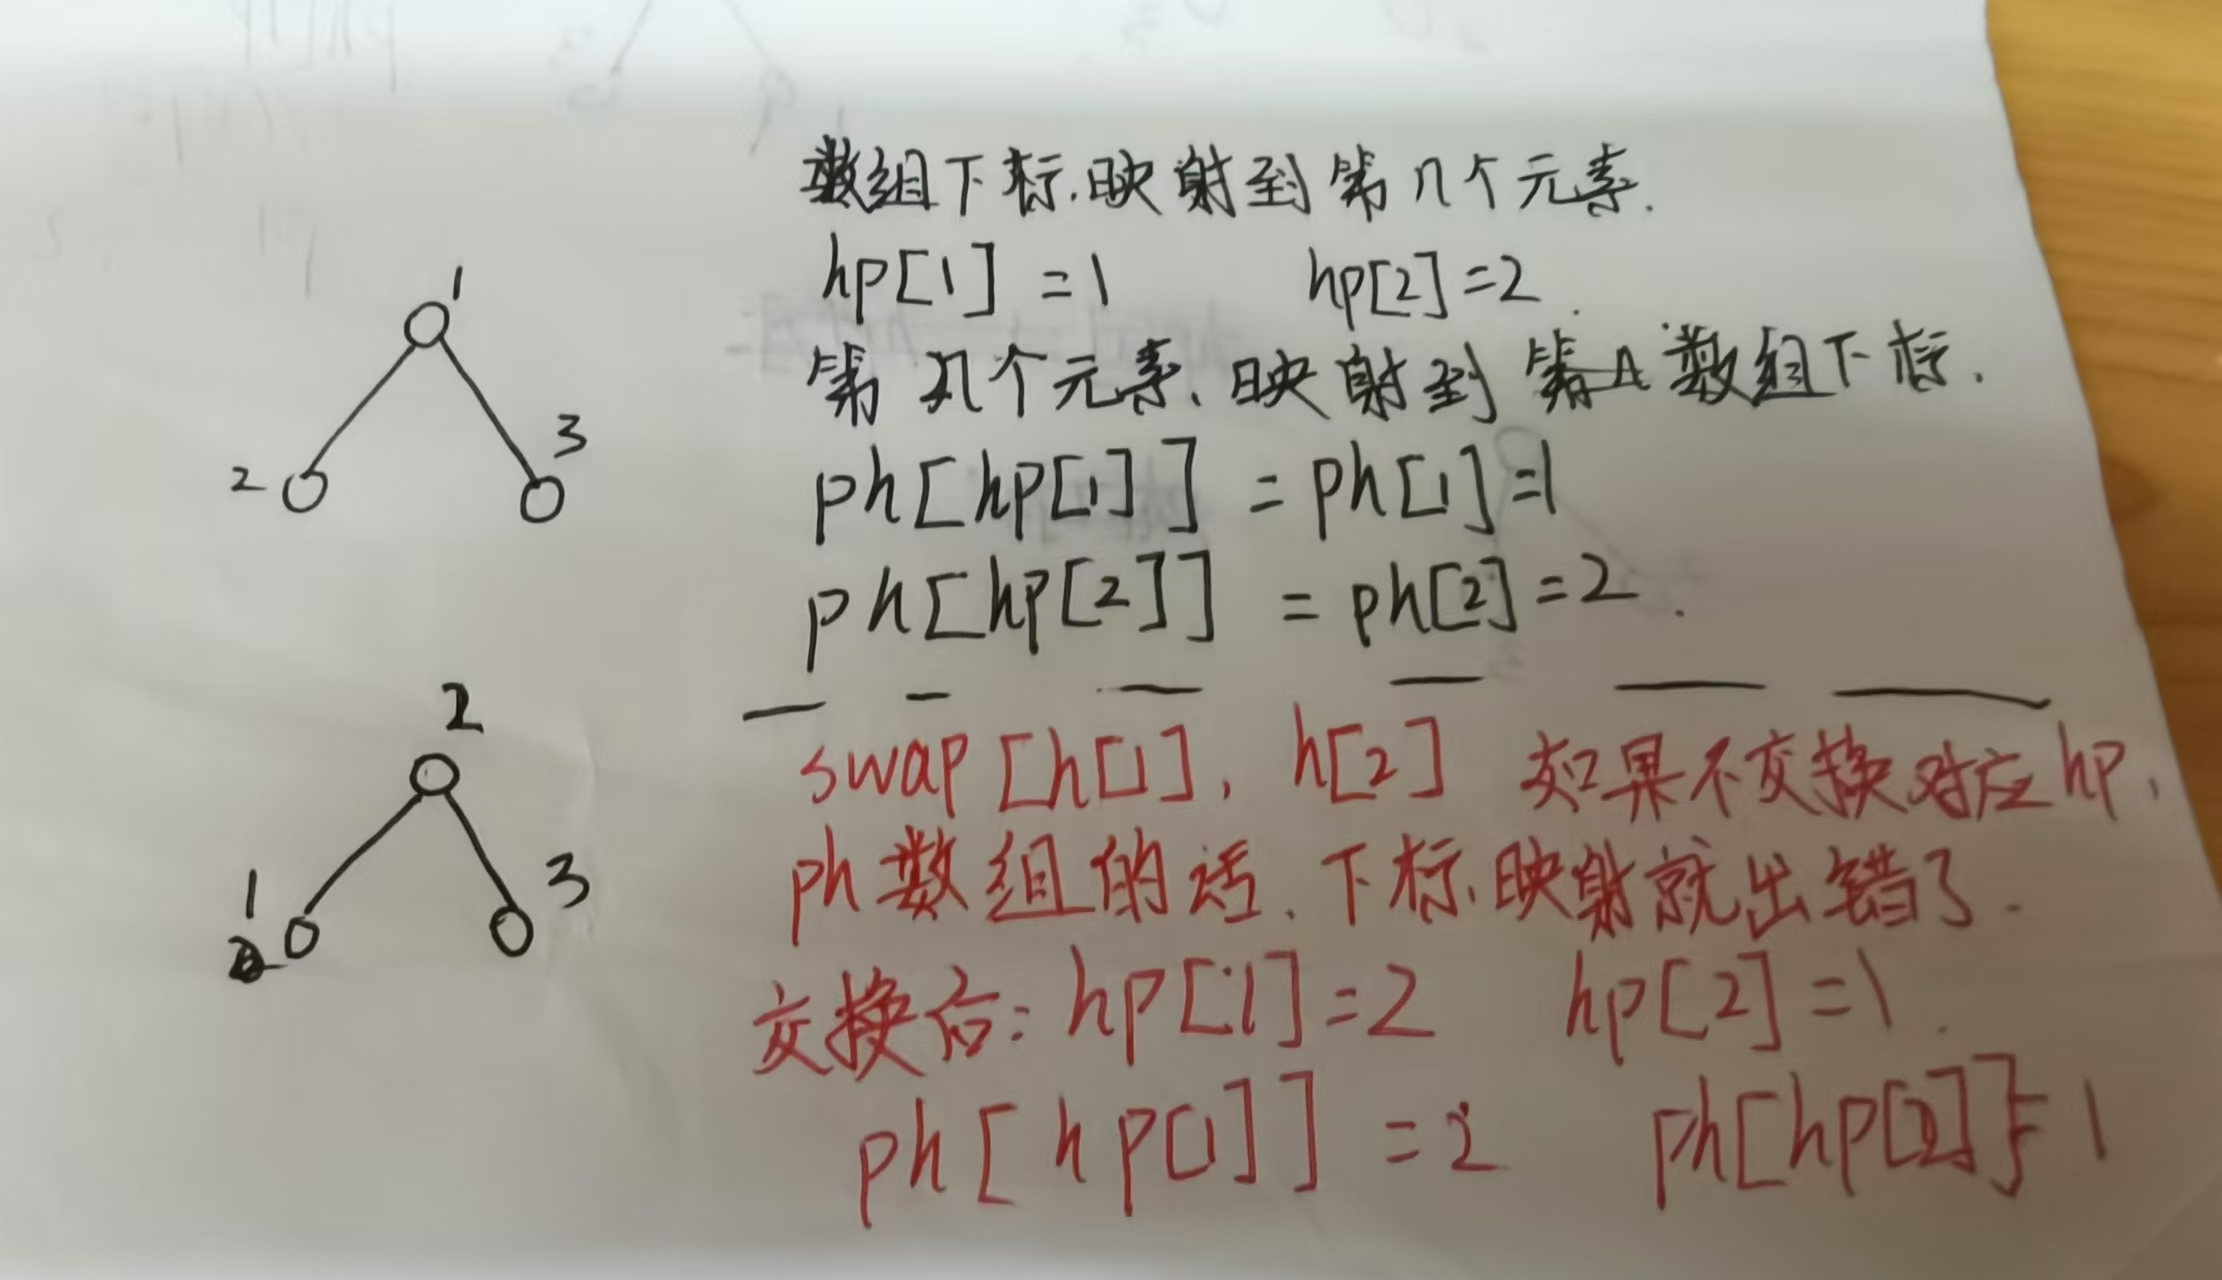 数组下标映射到第几个元素.
hp[1] =1 hp[2]=2.
第几个元素,映射到 数组下标.
ph[hp[1]] =ph[1]=1
ph[hp[2]] =ph[2]=2.
1
2
3
swap[h[1], h[2] 如果不交换对应hp,
ph数组的话,下标映射就出错了.
交换后: hp[1]=2 hp[2]=1.
ph[hp[1]] =2 ph[hp[2]]=1
2
1
3